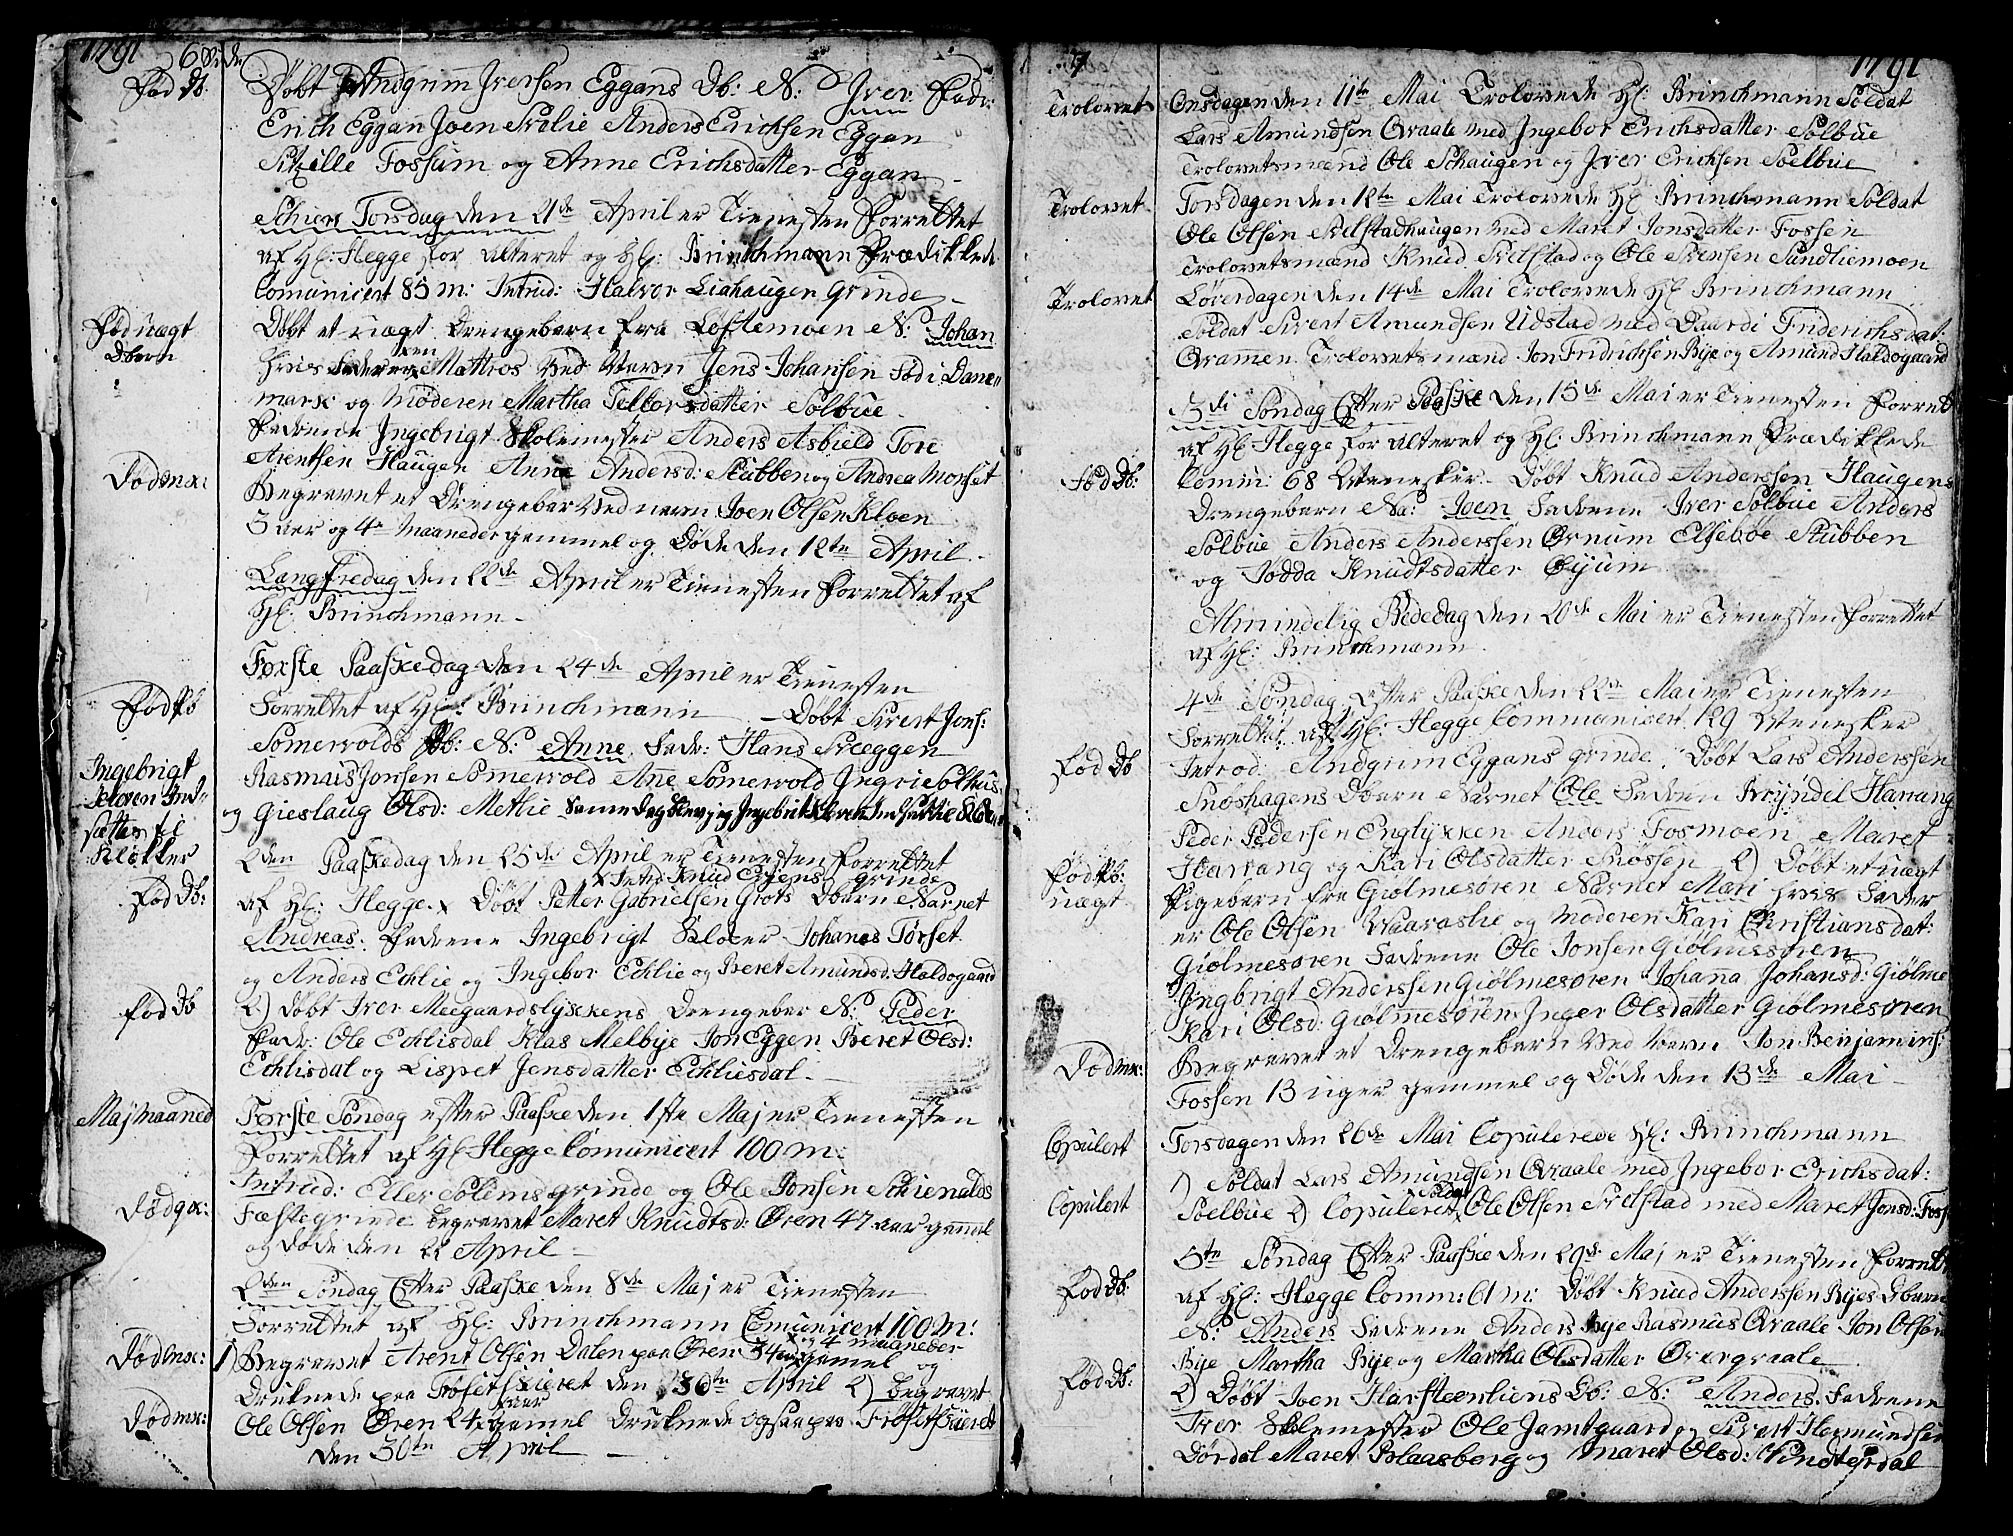 1791 6 Side
Fød Db: Døbt Andgrim Iversen Eggans Db: N: Iver Fadr:
Erich Eggan Joen Stolie Anders Erichsen Eggan
Sitzille Fossum og Anne Erichsdatter Eggan
Schier Torsdag den 21de April er Tienesten Forrettet
af Hl: Hegge for alteret og Hl: Brinchmann Prædikkede
Comunicert 85 m: Intrud: Halvor Liahaugen grinde
Fød uægt Døbt et uægt Drengebarn fra Løftemoen N: Johan
Dbarn hvis Faderen er Mattros ved Navn Jens Johansen Fød i Dane
mark og Moderen Martha Tellevsdatter Solbue
Fadrene Ingebrigt Skolemester Anders Asbield Tore
Arentsen Haugen Anne Andersd: Stubben og Andrea Morset
Død mx: Begravet et Drengebar Ved navn Joen Olsen Kloen
3 aar og 4 Maaneder gammel og Døde den 12te April
Langfredag den 22de April er Tienesten Forrettet af
Hl: Brinchmann
Første Paaskedag den 24de April er Tienesten
Fød Pb Forrettet af Hl: Brinchmann Døbt Sivert Jons:
Somervolds Pb: N: Anne Fadr: Hans Skeggen
Ingebrigt Rasmus Jonsen Somervold Ane Somervold Ingri Solhus
Kloven Ind og Gieslaug Olsd: Metlie Samme dag blev jeg Ingebrit Kloven Indsat til Klokker
sætter til
Klokker 2den Paaskedag den 25de April er Tienesten Forrettet
x Intrd Knud Eyens grinde
Fød Db: af Hl: Hegge x Døbt Petter Gabrielsen Grots Dbarn Navnet
Andreas Fadrene Ingebrigt Kloer Johanes Tørset
og Anders Echlie og Ingebor Echlie og Beret Amundsd: Haldogaard
Fød Db 2) Døbt Iver Meegaardslykkens Drengebar N: Peder
Fadr: Ole Echlisdal Klas Melbye Jon Eggen Beret Olsd:
Echlisdal og Lispet Jensdatter Echliesdal
Majmaaned Første Søndag efter Paaske den 1ste Maj er Tienesten
Forrettet af Hl Hegge Comunicert 100 m:
Intrud: Eller Solems grinde og Ole Jonsen Schienalds
Død qx: Fæstegrinde begravet Maret Knudtsd: Øren 47 aar gamel
og døde den 22 April
2den Søndag Efter Paaske den 8de Maj er Tienesten
Forrettet af Hl: Brinchmann Comunicert 100 m:
x og 4 maaneder
Død mx: 1) Begravet Arent Olsen Dalen paa Øren 34 aar x gamel og
Druknede paa Trøsetskieret den 30te April 2) begravet
aar
Død mx: Ole Olsen Øren 24 x gamel Druknede ogsaa paa Trøsetskieret
den 30te April
7 1791
Trolovet Onsdagen den 11te Mai Trolovede Hl: Brinchmann Soldat
Lars Amundsen Qvaale med Ingebor Erichsdatter Solbue
Trolovetsmænd Ole Schaugen og Iver Erichsen Soelbue
Trolovet Torsdagen den 12te Mai Trolovede Hl: Brinchmann Soldat
Ole Olsen Kelstadhaugen med Maret Jonsdatter Fossen
Trolovetsmænd Knud Kelstad og Ole Svensen Sundliemoen
Trolovet Løverdagen den 14de Mai Trolovede Hl Brinchmann
Soldat Sivert Amundsen Udstad med Baardi Friderichsdat:
Qvammen Trolovetsmænd Jon Fridrichsen Bye og Amund Haldogaard
3di Søndag Efter Paaske den 15de Mai er Tienesten Forrett
af Hl Hegge for alteret og Hl: Brinchmann Prædikkede
Fød Db: komm: 68 Mænesker Døbt Knud Anderssen Haugens
Drengebarn Na: Joen Fadrene Iver Solbue Anders
Solbue Anders Anderssen Ørnum Elsebøe Stubben
og Jodda Knudtsdatter Øyum
Almindelig Bededag den 20de Mai er Tienesten Forrettet
af Hl: Brinchmann
4de Søndag efter Paaske den 22de Mai er Tienesten
Forrettet af Hl: Hegge Commanicert 129 Mænesker
Fød Db Introd: Andgrim Eggans grinde. Døbt Lars Anderssen
Snøshagens Dbarn Navnet Ole Fadren Bryndel Harvang
Peder Pedersen Englykken Anders Fosmoen Maret
Fød Pb: Harvang og Kari Olsdatter Snøssen 2) Døbt et uægt
uægt Pigebarn fra Giølmesøren Navnet Mari hvis Fader
er Ole Olsen Waaraslie og Moderen Kari Christiansdat:
Giølmesøren Fadrene Ole Jonsen Giølmesøren
Ingbrigt Anderssen Giølmesøren Johana Johansd: Giølme
Kari Olsd: Giølmesøren Inger Olsdatter Giølmesøren
Død mx: Begravet et Drengebarn ved Navn Jon Benjamins:
Fossen 13 uger gammel og Døde den 13de Mai
Copulert Torsdagen den 26de Mai Copulerede Hl: Brinchmann
1) Soldat Lars Amundsen Qvaale med Ingebor Erichsdat:
Soldat
Copulert Soelbue 2) Copuleret x Ole Olsen Kelstad med Maret Jonsd: Foss
5te Søndag Efter Paaske den 29de Maj er Tienesten Forrett
Fød Db: af Hl: Hegge Comm: 61 m: Døbt Knud Anderssen Byes Dbarn
N: Anders Fadrene Anders Bye Rasmus Qvaale Jon Olsen
Bye Martha Bye og Martha Olsdatter Øvergvaale
Fød Db: 2) Døbt Joen Harsteenliens Db: N: Anders. Fadrene
Iver Skolemester Ole Jamtgaard og Sivert Hermundsen
Dørdal Maret Blaasberg og Maret Olsd: Vindterdal